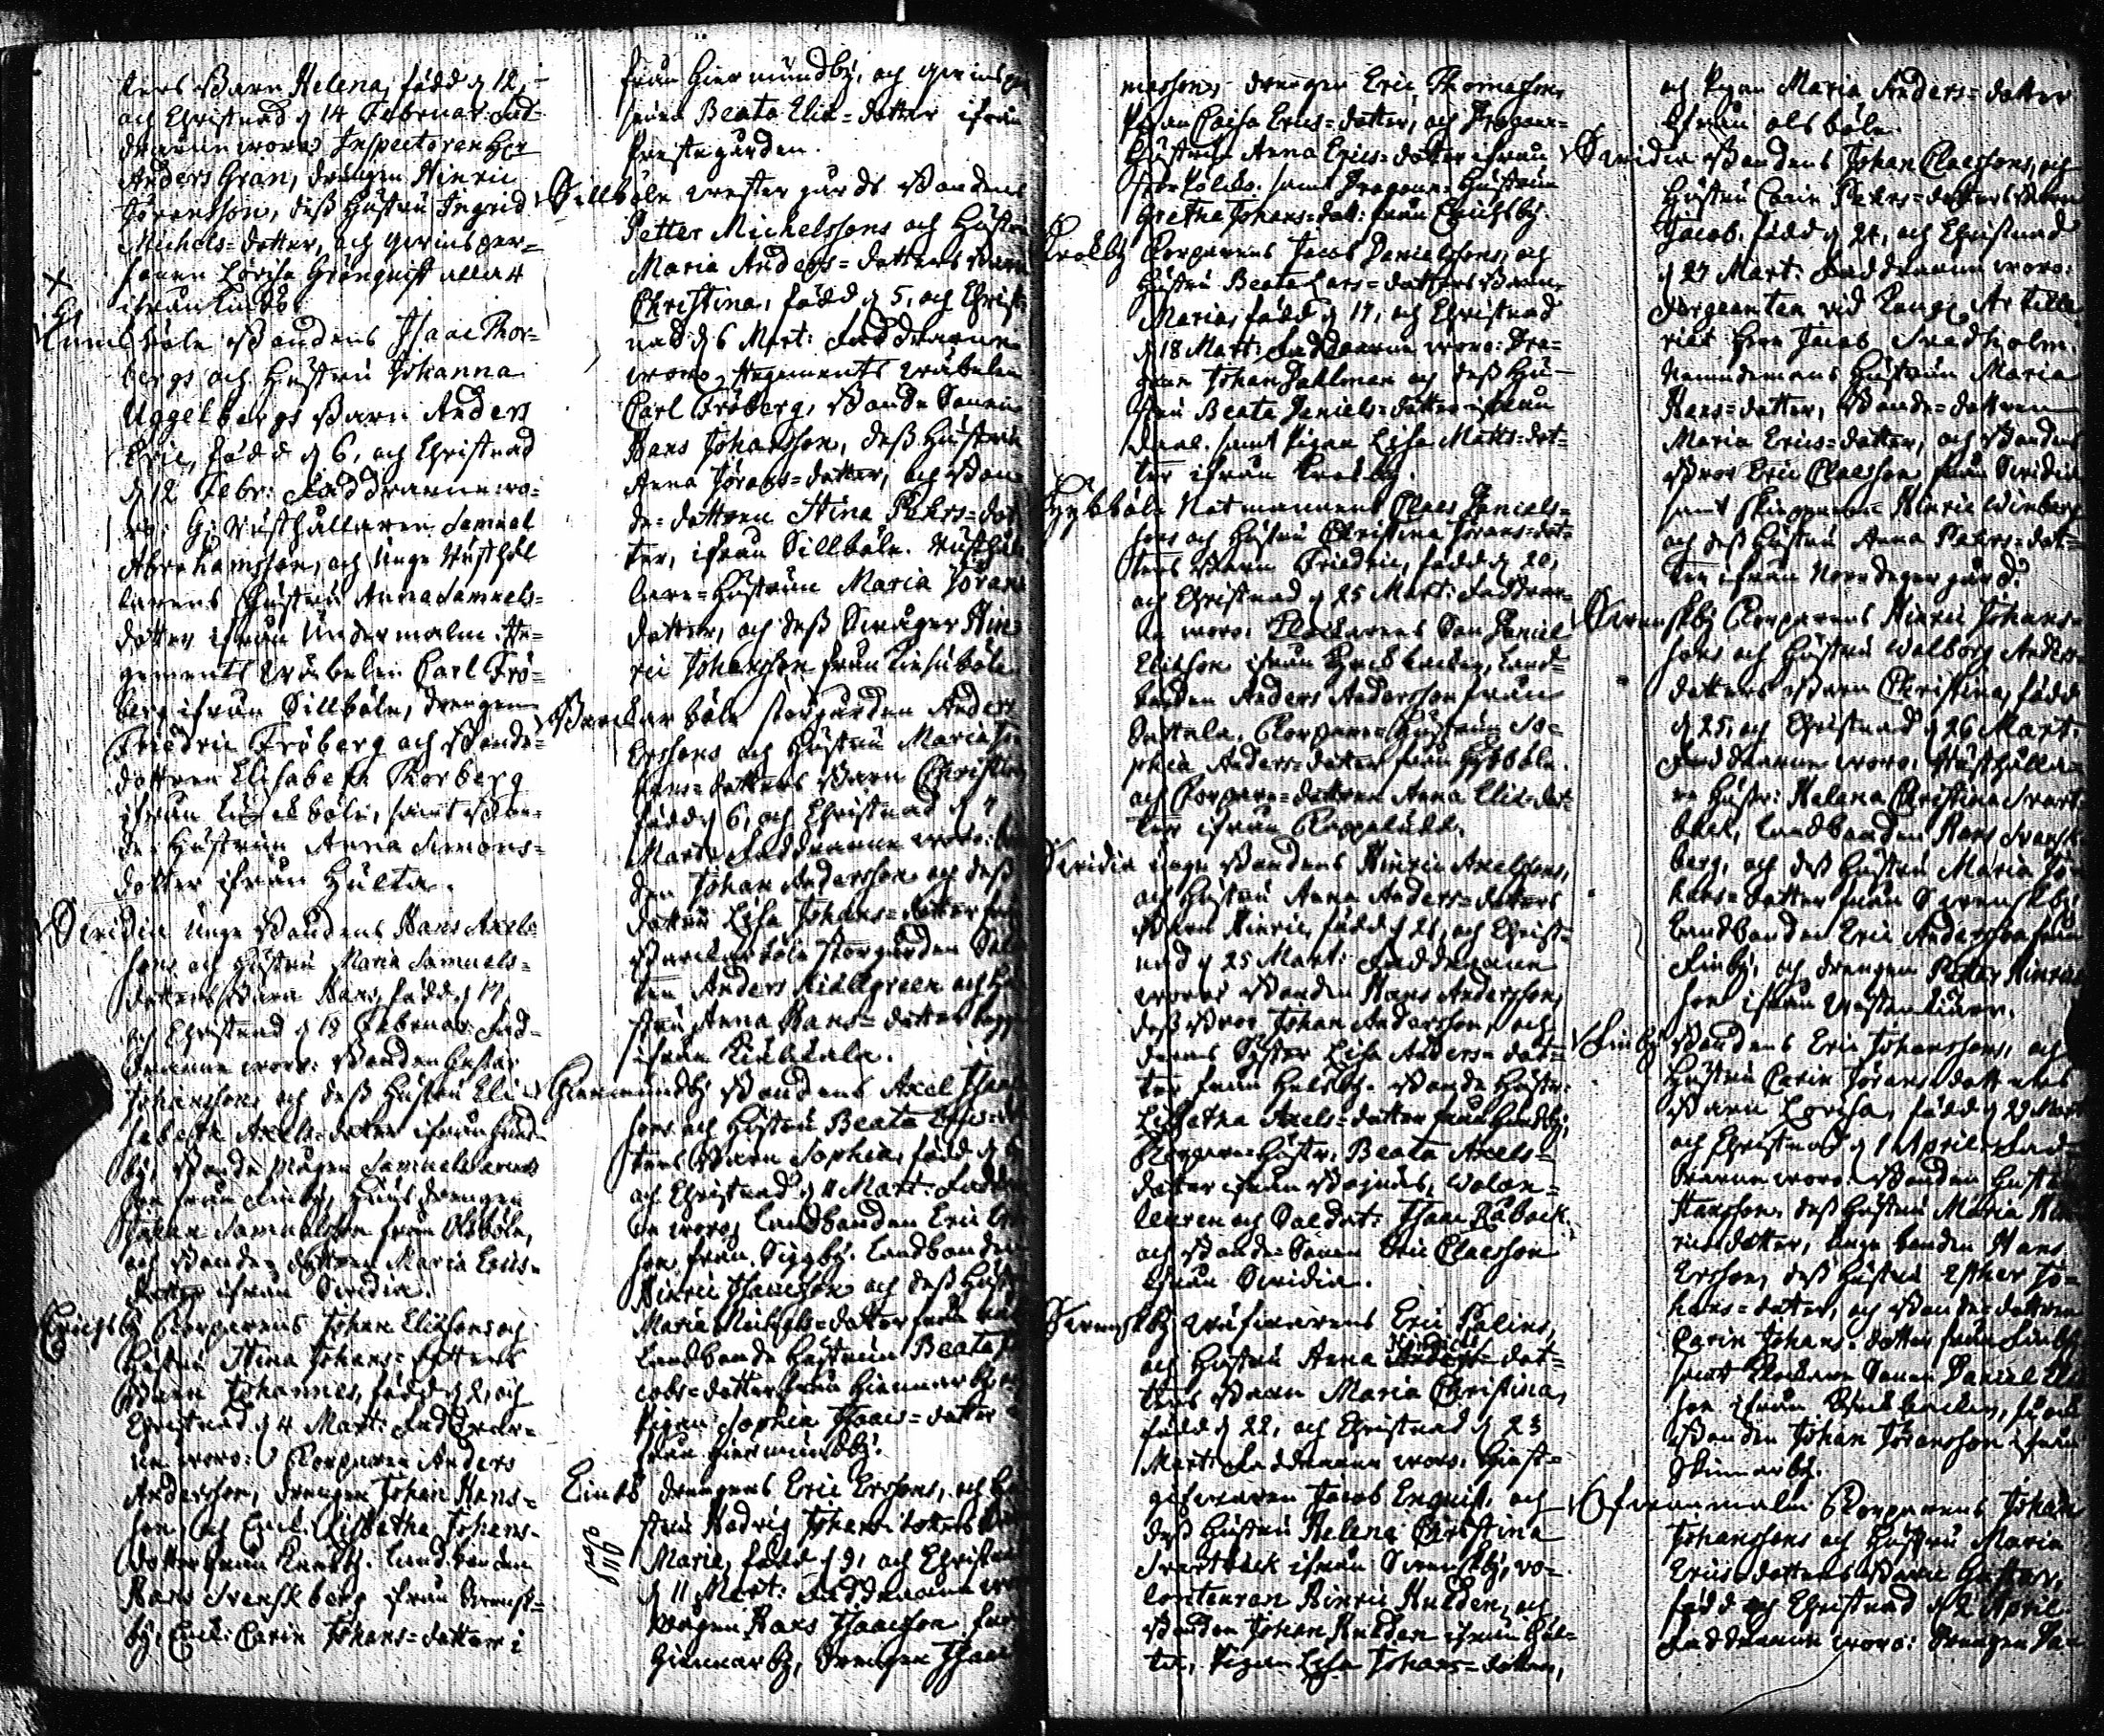 ters Barn Helena, född d 12,
och Christnad d 14 Februar: Fad-
drarne woro Inspectoren Herr
Anders Gran, drengen Hinric
Jöransson, dess Hustru Ingrid
Michels-dotter, och
Lovisa Grönquist alla
ifrån Lindö.
böle Bondens Isaac Thor-
bergs och Hustru Johanna
Uggelbergs Barn Anders
Eric, född d 6, och Christnad
d 12 Febr: Faddrarne wo-
ro: Rusthållaren Samuel
Abrahamsson, och Unge Rusthål
larens Hustru Anna Samuels-
dotter ifrån Undermalm. Re-
gements Carl Frö-
berg ifrån Sillböle, drengen
Friedric Fröberg och Bonde-
dottren Elisabeth Thorberg
ifrån böle, samt Bon-
de-Hustrun Anna Simons-
dotter ifrån Hulta.
Seridie Unge Bondens Hans Axels-
sons och Hustru Maria Samuels-
dotters Barn Hans, född d 17,
och Christnad d 18 Februar: Fad-
drarne woro: Bonden Gustav
Johansson och dess Hustru Eli-
sabeth Axels-dotter ifrån
by, Bonde Mågen Samuel
son från Finby,
Johan Samuelsson från Olsböle,
och Bonde-dottren Maria Erics-
dotter ifrån Seridie.
Erichsby Torparens Johan Elissons och
Hustru Stina Johans-dotters
Barn Johannes, född d 2, och
Christnad d 4 Mart: Faddrar-
ne woro: Torparen Anders
Andersson, drengen Johan Hans-
son och Enk. Lisbetha Johans-
dotter från by. Landbonden
Hans Svenskberg från Svensk-
by, Enk. Carin Johans-dotter i
från Giermundby, och
Beata Elis-dotter ifrån
Prestegården.
Sillböle westergårds Bondens
Petter Michelssons och Hustru
Maria Anders-dotters Barn
Christina, född d 5, och Christ-
nad d 6 Mart: Faddrarne
woro, Regements
Carl Fröberg, Bonde Sonen
Hans Johansson, dess Hustru
Anna Jörans-dotter, och Bon-
de-dottren Stina Pehrs-dot
ter, ifrån Sillböle. Rusthål
lare-Hustrun Maria Jörans
dotter, och dess Swåger Hin-
ric Johansson från böle
böle storgården Anders
Erssons och Hustru Maria
hans-dotters Barn Christina
född d 6, och Christnad d 7
Mart: Faddrarne woro: Bon
den Johan Andersson och dess
dotter Lisa Johans-dotter från
böle storgården
ten Anders Kiällgreen och Hu
stru Anna Hans-dotter
ifrån
Giermundby Bondens Axel Isaac
sons och Hustru Beata Erics-dot
ters Barn Sophia, född d
och Christnad d 11 Mart: Faddrar
ne woro, Landbonden Eric
son från Siggby. Landbonden
Hinric Isaacsson och dess Hustru
Maria Michels-dotter från
Landbonde Hustrun Beata Ja
cobs-dotter från Giennarby,
Pigan Sophia Isaacs-dotter
från Giermundby.
Lindö drengens Eric Erssons, och Hu
stru Hedvig Johans-dotters Barn
Maria, född d 9, och Christnad
d 11 Mart: Faddrarne woro
Drengen Hans Isaacsson från
Giennarby, Drengen Isaac
masson, drengen Eric Thomasson,
Pigan Caisa Erics-dotter, och Dragone-
Hustrun Anna Erics-dotter ifrån
samt Dragone-Hustrun
Gretha Johans-dott: från Erichsby.
Krokby Torparens Jacob Danielssons, och
Hustru Beata Lars-dotters Barn
Maria, född d 17, och Christnad
d 18 Mart: Faddrarne woro: Dra-
gon Johan Dahlman och dess Hu-
stru Beata Daniels-dotter ifrån
samt Pigan Lisa Matts-dot-
ter ifrån Krokby.
böle Notmannens Claes Daniels-
sons och Hustru Christina Jörans-dot-
ters Barn Friedric, född d 20,
och Christnad d 25 Mart: Faddrar-
ne woro: Klockarens Son Daniel
Elisson ifrån backen, Land-
bonden Anders Andersson från
Torpare Hustrun So-
phia Anders-dotter från böle.
och Torpare-dottren Anna Elis-dot-
ter ifrån
Seridie Unge Bondens Hinric Axelssons,
och Hustru Anna Anders-dotters
Barn Hinric, född d 21, och Christ-
nad d 25 Mart: Faddrarne
woro: Bonden Hans Andersson,
dess Bror Johan Andersson, och
deras Syster Lisa Anders-dot-
ter från Bonde Hustr:
Lisbetha Axels-dotter från
Torpare-Hustr: Beata Axels-
dotter ifrån
Soldat: Isaac Råback,
och Bonde-Sonen Eric Claesson
ifrån Seridie.
Svenskby Eric Palins,
och Hustru Anna Hindrics-dot-
ters Barn Maria Christina,
född d 22, och Christnad d 23
Mart: Faddrarne woro, Giäst-
gifwaren Jacob Enquist, och
dess Hustru Helena Christina
Svartbäck ifrån Svenskby, vo-
lontairen Hinric Hulden, och
Bonden Johan Hulden ifrån Hul-
ta, Pigan Lisa Johans-dotter,
och Pigan Maria Anders-dotter
ifrån Olsböle.
Seridie Bondens Johan Claessons, och
Hustru Carin Pehrs-dotters Barn
Jacob, född d 24, och Christnad
d 27 Mart: Faddrarne woro:
Sergeanten vid Kongl. Artille-
riet Herr Jacob Stadholm.
Nemndemans Hustrun Maria
Hans-dotter, Bonde-dottren
Maria Erics-dotter, och Bondens
Bror Eric Claesson från Seridie
samt Hinric Winberg
och dess Hustru Anna Pehrs-dot-
ter ifrån gård.
Svenskby Torparens Hinric Johans-
sons och Hustru Walborg Anders-
dotters Barn Christina, född
d 25, och Christnad d 26 Mart.
Faddrarne woro, Rusthålla-
re Hustr: Helena Christina Svart-
bäck, Landbonden Hans Svensk-
berg, och dess Hustru Maria Jo-
hans-dotter från Svenskby,
Landbonden Eric Andersson från
Finby, och drengen Petter Hinrics
son ifrån
Finby Bondens Eric Johanssons, och
Hustru Carin Jörans-dotters
Barn Lovisa, född d 29 Mart
och Christnad d 1 April: Fad-
drarne woro: Bonden Gustav
Hansson, dess Hustru Maria Hin-
rics dotter, Unge bonden Hans
Ersson, dess Hustru Esther Jo-
hans-dotter, och Bonde-dottren
Carin Johans-dotter från Finby
samt Klockare Sonen Daniel Elis
son ifrån backen, och
Bonden Johan Johansson ifrån
Skinnarby.
Öfvermalm Torparens Johan
Johanssons och Hustru Maria
Erics-dotters Barn Gustav,
född och Christnad d 2 April.
Faddrarne woro: Drengen Da-